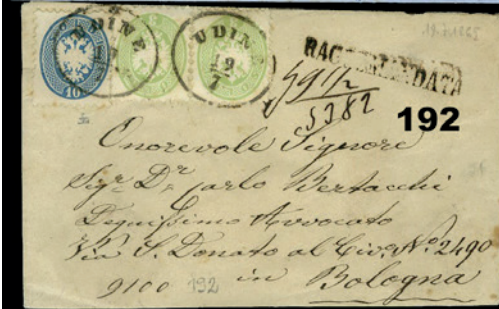 19.7.1865
UDINE
UDINE
19
7
10
RACCOMANDATA
5382
192
Onorevole Signore
Sigr. Dr. Carlo Bertacchi
Degnissimo Avvocato
Via S. Donato al Civ. No. 2490
in Bologna
9100
192